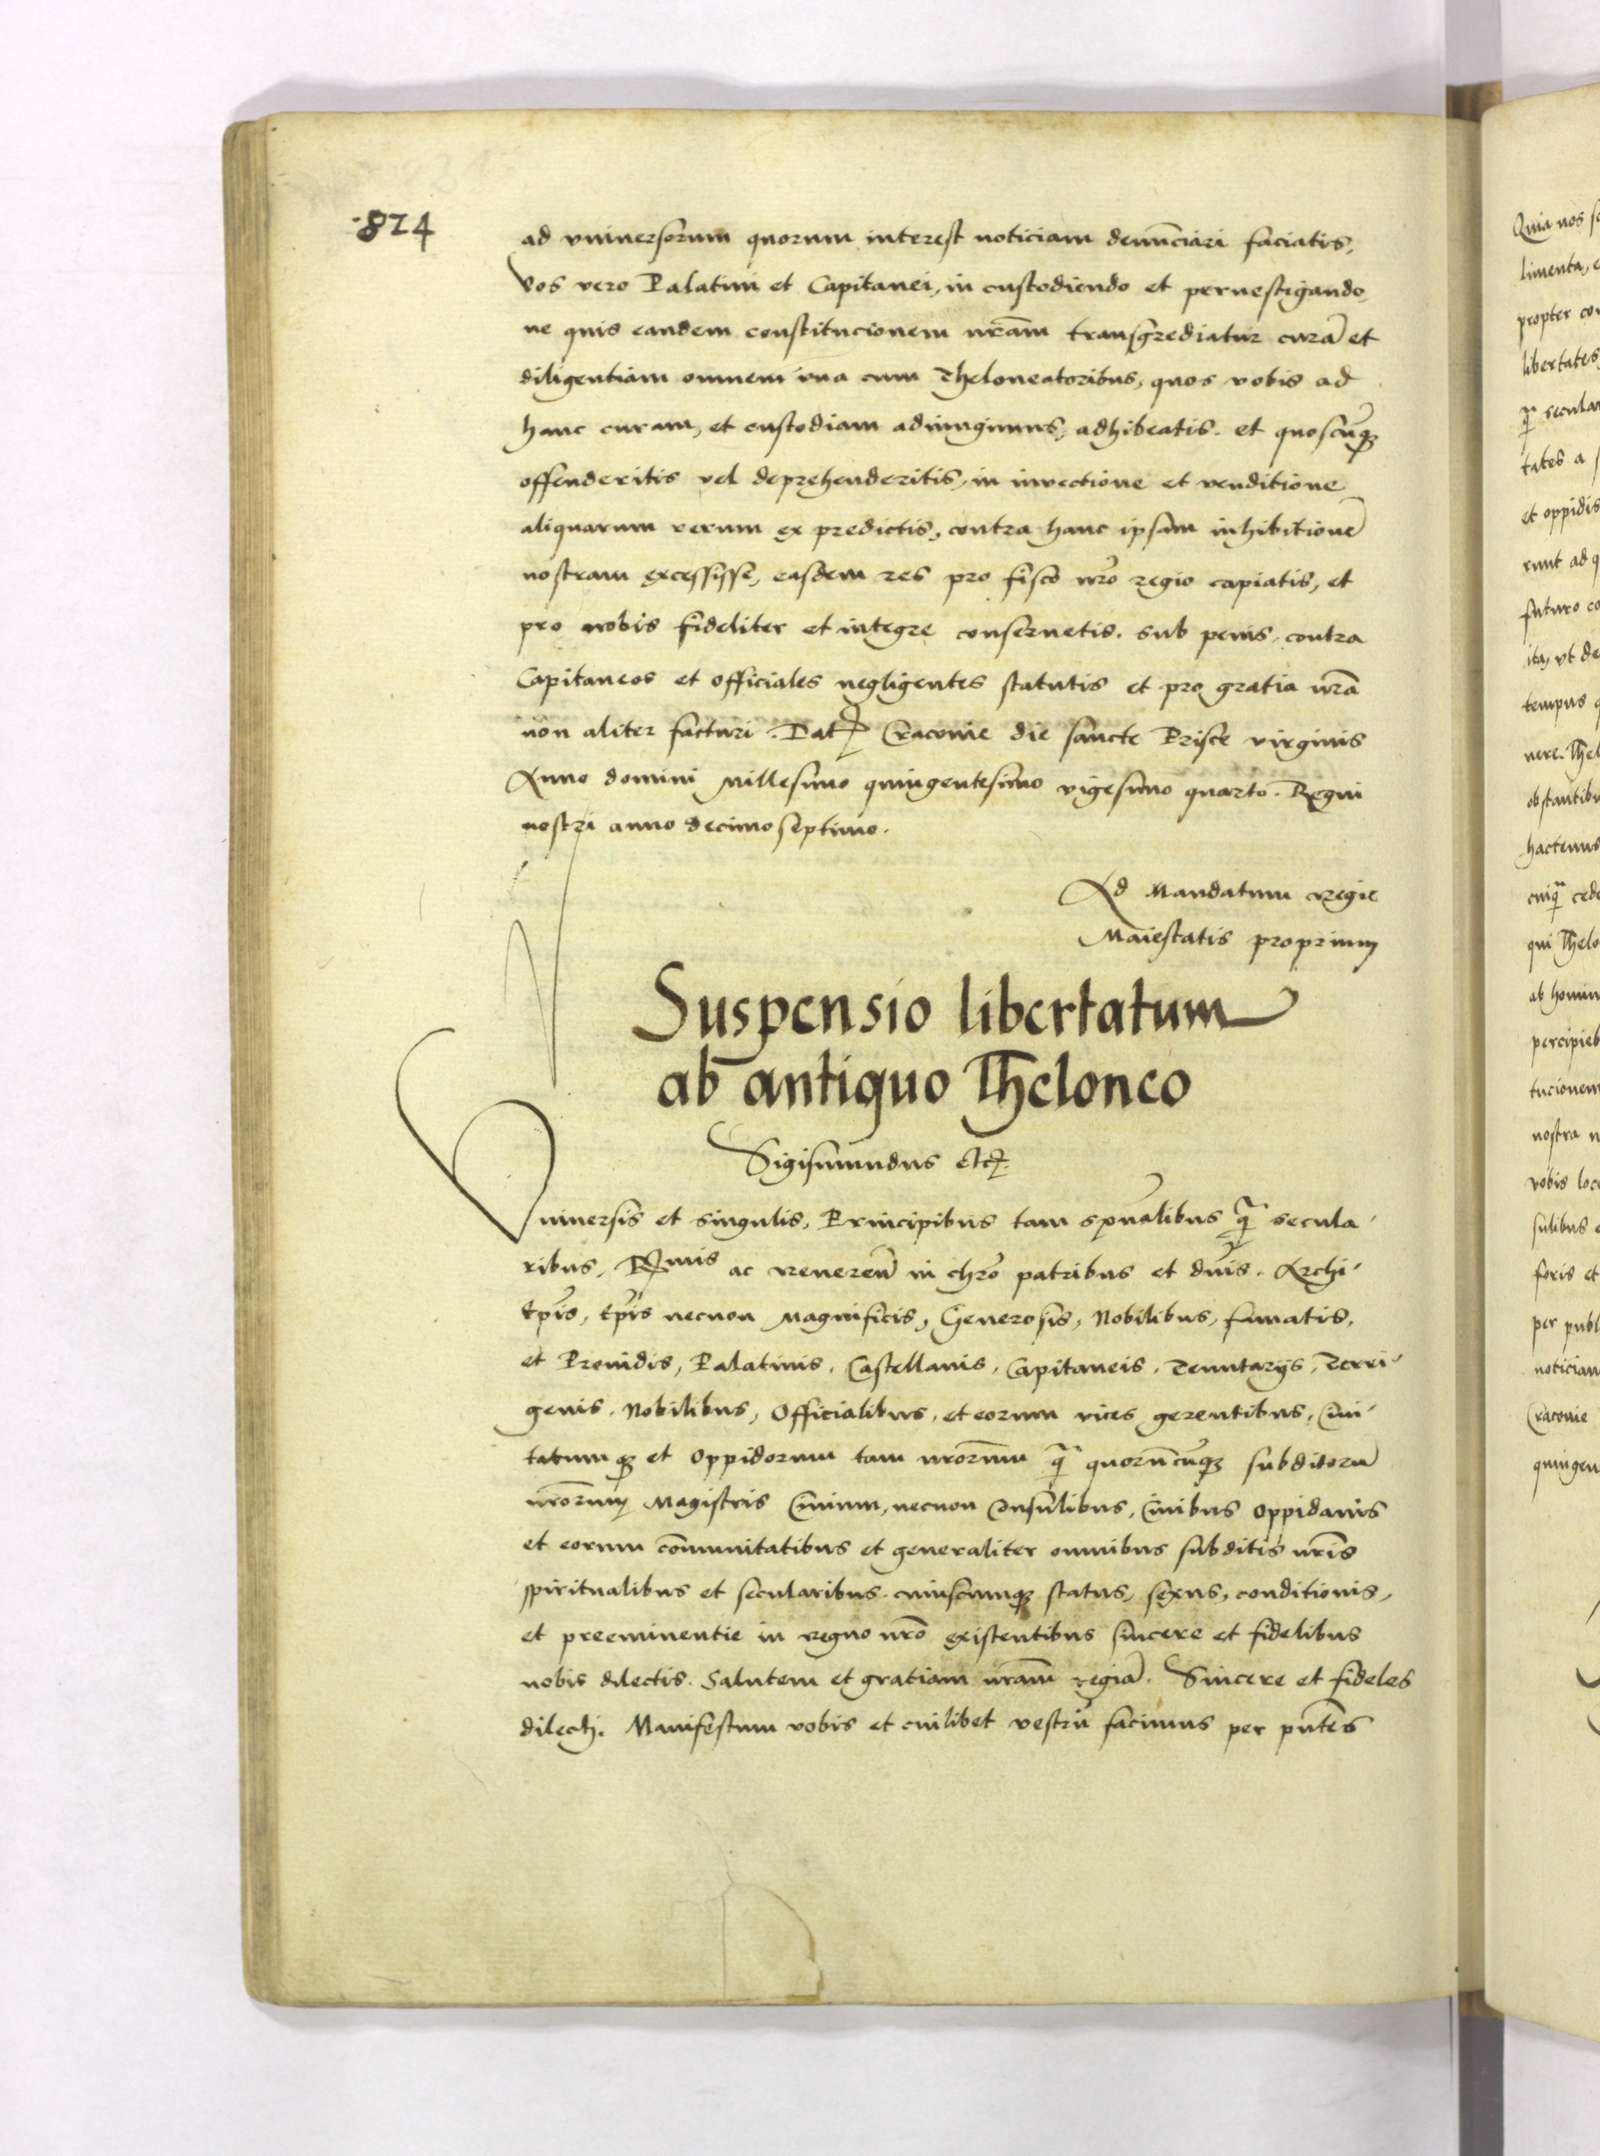 824
ad vniuersorum quorum interest noticiam denūciari faciatis,
Vos vero Palatini et Capitanei, in custodiendo et peruestigando
ne quis eandem constitucionem nrām transgrediatur curā et
diligentiam omnem vna cum Theloneatoribus, quos vobis ad
hanc curam, et custodiam adiungimus, adhibeatis. et quoscūqꝫ
offenderitis vel deprehenderitis, in invectione et venditione
aliquarum rerum ex predictis, contra hanc ipsam inhibitionē
nostram excessisse, easdem res pro fisco nrō regio capiatis, et
pro nobis fideliter et integre conseruetis. sub penis, contra
Capitaneos et officiales negligentes statutis et pro gratia nrā
non aliter facturi. Dat Cracovie die sancte Prisce virginis
Anno domini Millesimo quingentesimo vigesimo quarto. Regni
nostri anno decimo septimo.
Ad Mandatum Regie
Maiestatis proprium
Suspensio libertatum
ab antiquo Theloneo
Sigismundus etc.
Vniuersis et singulis, Principibus tam spūalibus q̄ secula-
ribus, Rmis ac Reuereñ in chrō patribus et dñis. Archi-
Epīs, Epīs necnon Magnificis, Generosis, Nobilibus, famatis,
et Prouidis, Palatinis, Castellanis, Capitaneis, Tenutarijs, Terri-
genis. Nobilibus, Officialibus, et eorum vices gerentibus, Ciui-
tatumqꝫ et Oppidorum tam nrōrum q̄ quorūcūqꝫ subditorū
nrōrum Magistris Ciuium, necnon Consulibus, Ciuibus Oppidanis
et eorum cōmunitatibus et generaliter omnibus subditis nrīs
spiritualibus et secularibus cuiuscumqꝫ status, sexus, conditionis,
et preeminentie in regno nrō existentibus sincere et fidelibus
nobis dilectis. Salutem et gratiam nrām regiā. Sincere et fideles
dilecti. Manifestum vobis et cuilibet vestrū facimus per pn̄tes
Quia nos
limenta,
propter
libertates
q̄ secula
tates a
et oppidis
runt ad
futuro
ita, vt de
tempus
nere. Thel
obstantibu
hactenus
cuiq̄
qui Thelo
ab homin
percipieb
tucionem
nostra
vobis loc
sulibus
foris et
per publ
noticiam
Cracovie
quingen